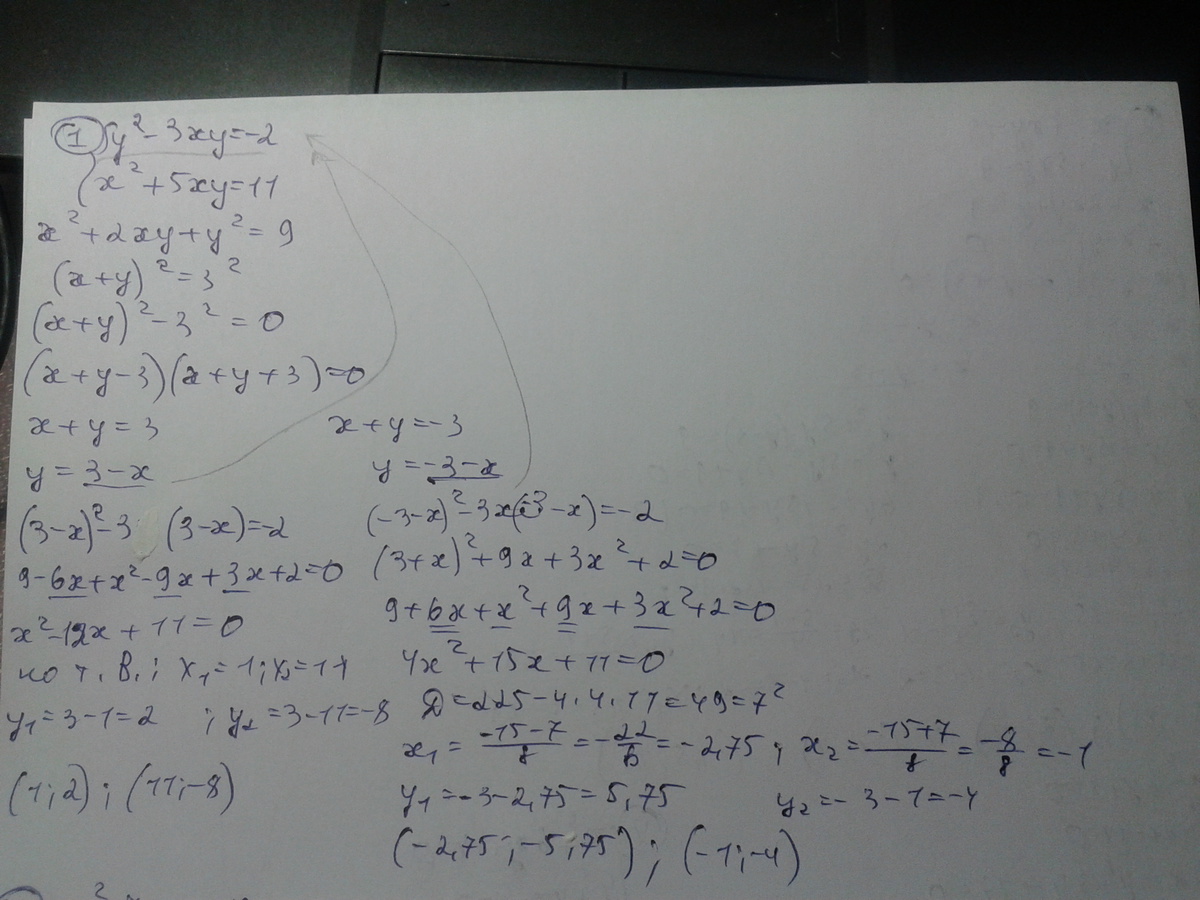 ① { y² - 3xy = -2
x² + 5xy = 11
x² + 2xy + y² = 9
(x+y)² = 3²
(x+y)² - 3² = 0
(x+y-3)(x+y+3)=0
x+y=3
y = 3-x
(3-x)² - 3 (3-x) = -2
9-6x+x²-9x+3x+2=0
x²-12x+11=0
по т. В.; x₁=1; x₂=11
y₁=3-1=2 ; y₂=3-11=-8
(1;2) ; (11;-8)
x+y=-3
y=-3-x
(-3-x)²-3x(-3-x)=-2
(3+x)²+9x+3x²+2=0
9+6x+x²+9x+3x²+2=0
4x²+15x+11=0
D=225-4·4·11=49=7²
x₁ = (-15-7)/8 = -22/8 = -2,75 ; x₂ = (-15+7)/8 = -8/8 = -1
y₁=-3-2,75=5,75 y₂=-3-1=-4
(-2,75;-5,75) ; (-1;-4)